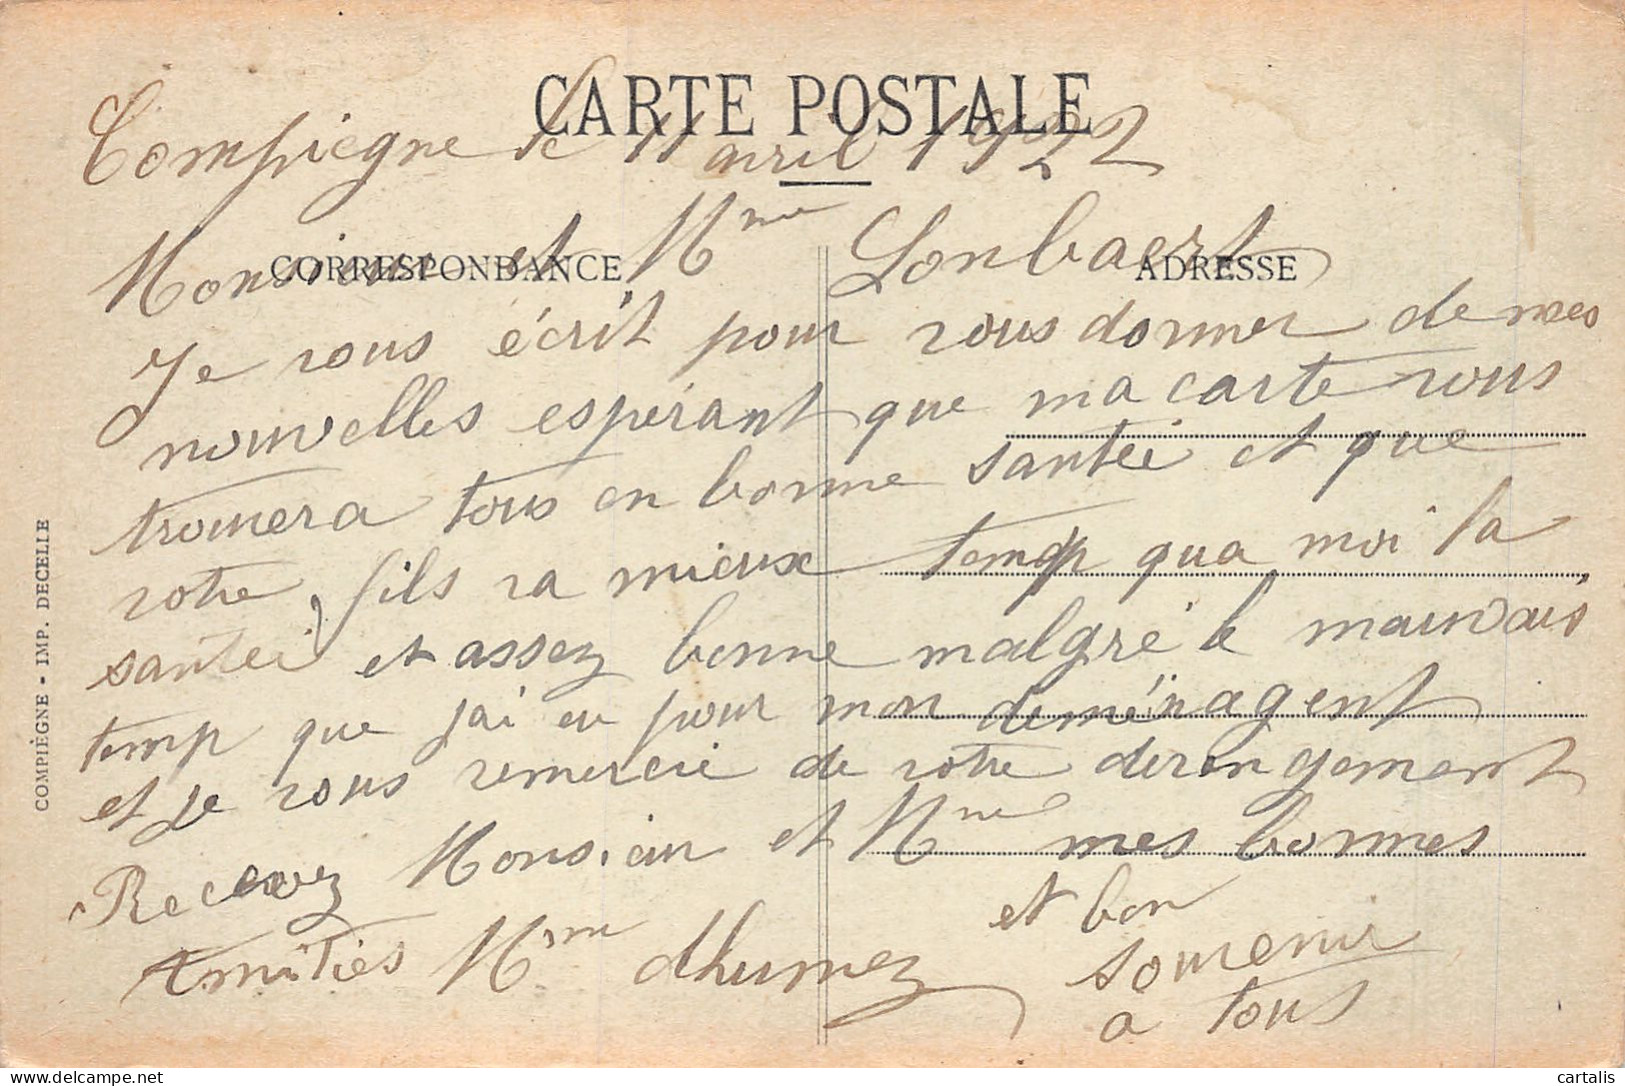 CARTE POSTALE
Compiegne le 11 avril 1922
CORRESPONDANCE
ADRESSE
Monsieur et Mme Lonbaert
Je vous écrit pour vous donner de mes
nouvelles espérant que ma carte vous
trouvera tous en bonne santée et que
votre fils va mieux temp qua moi la
santei et assez bonne malgré le mauvais
temp que j'ai eu pour mon deménagent
et je vous remercie de votre derengement
Recevez Monsieur et Mme mes bonnes
Amitiés Mme dhumez et bon
souvenir
a tous
COMPIÈGNE - IMP. DECELLE
cartalis